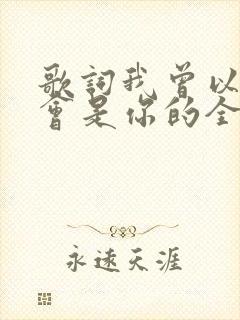 歌詞我曾以
會是你的全
永遠天涯